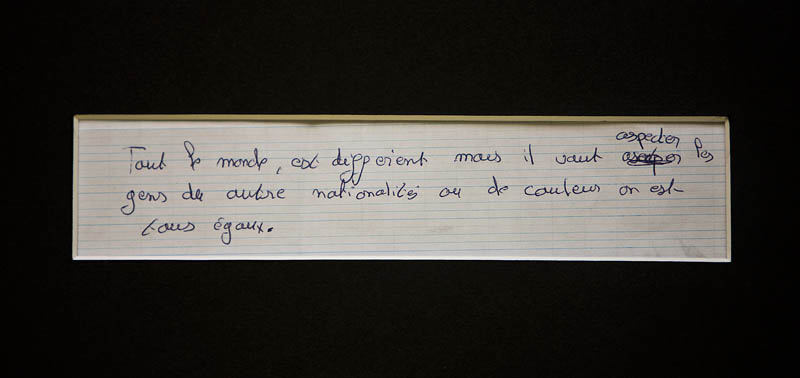 Tout le monde, est different mais il vaut respecter les
gens de autre nationalités ou de couleur on est
tous égaux.